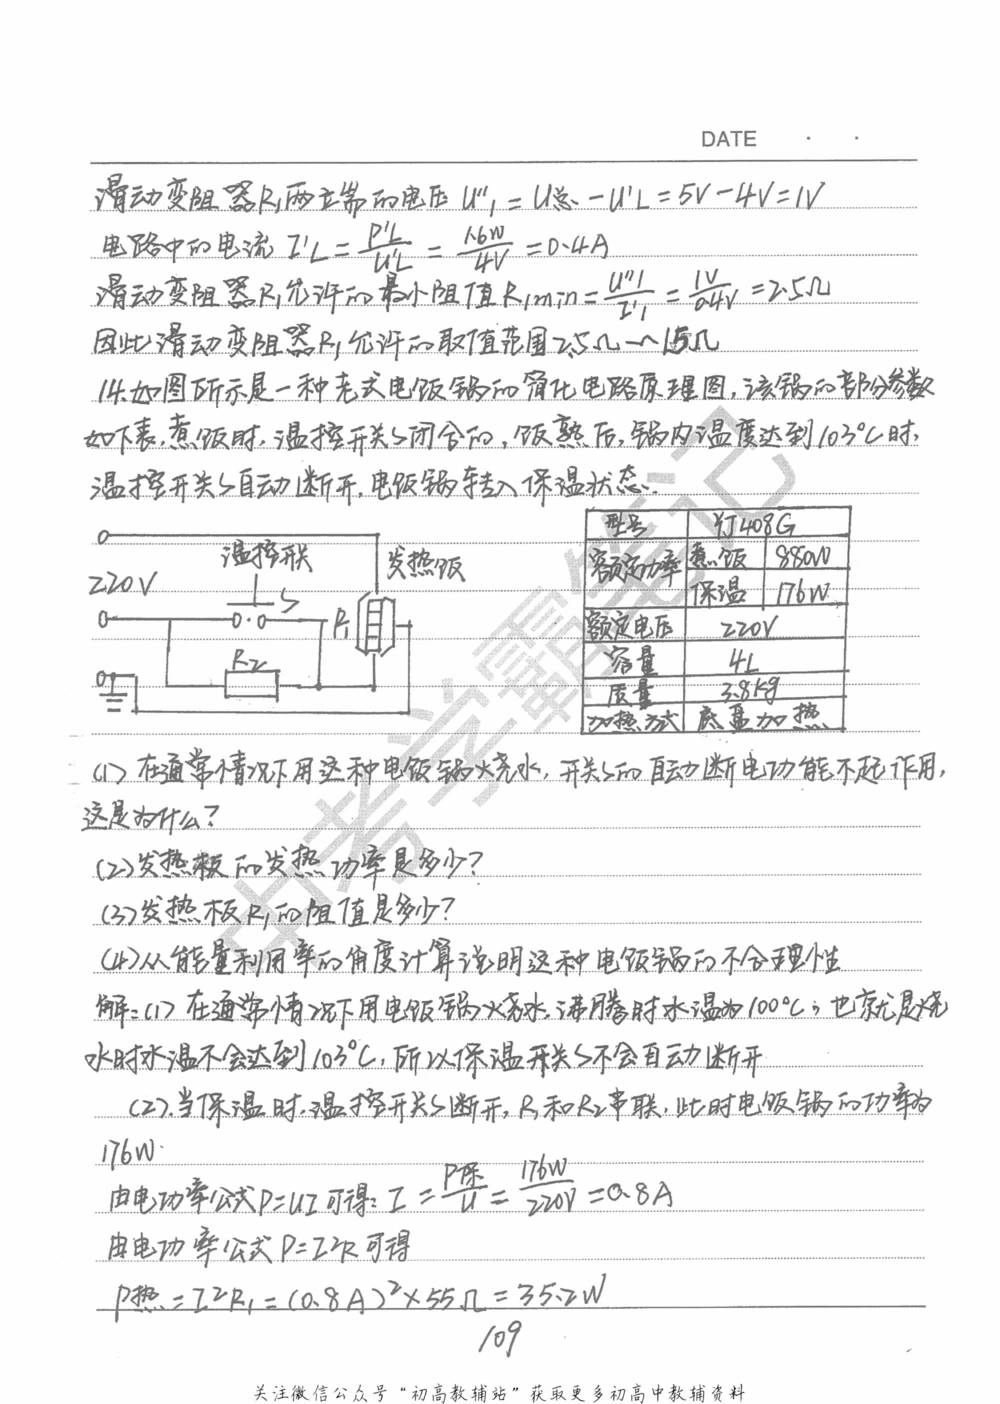 DATE · ·
滑动变阻器R₁两端的电压 U″₁=U总-U′L=5V-4V=1V
电路中的电流 I′L=P′L/U′L=1.6W/4V=0.4A
滑动变阻器R₁允许的最小阻值R₁min=U″1/I′₁=1V/0.4V=2.5Ω
因此滑动变阻器R₁允许的取值范围2.5Ω~15Ω
14.如图所示是一种老式电饭锅的简化电路原理图,该锅的部分参数
如下表,煮饭时,温控开关S闭合的,饭熟后,锅内温度达到103℃时,
温控开关S自动断开,电饭锅转入保温状态.
220V
温控开关
S
R₂
R₁
发热饭
型号 YJ408G
额定功率 煮饭 880W
保温 176W
额定电压 220V
容量 4L
质量 3.8kg
加热方式 底盘加热
(1)在通常情况下用这种电饭锅烧水,开关S的自动断电功能不起作用,
这是为什么?
(2)发热板的发热功率是多少?
(3)发热板R₁的阻值是多少?
(4)从能量利用率的角度计算说明这种电饭锅的不合理性
解:(1)在通常情况下用电饭锅烧水,沸腾时水温为100℃;也就是烧
水时水温不会达到103℃,所以保温开关S不会自动断开
(2).当保温时,温控开关S断开,R₁和R₂串联,此时电饭锅的功率为
176W.
由电功率公式P=UI可得:I=P保/U=176W/220V=0.8A
由电功率公式P=I²R可得
P热=I²R₁=(0.8A)²×55Ω=35.2W
109
关注微信公众号“初高教辅站”获取更多初高中教辅资料
中考学霸笔记